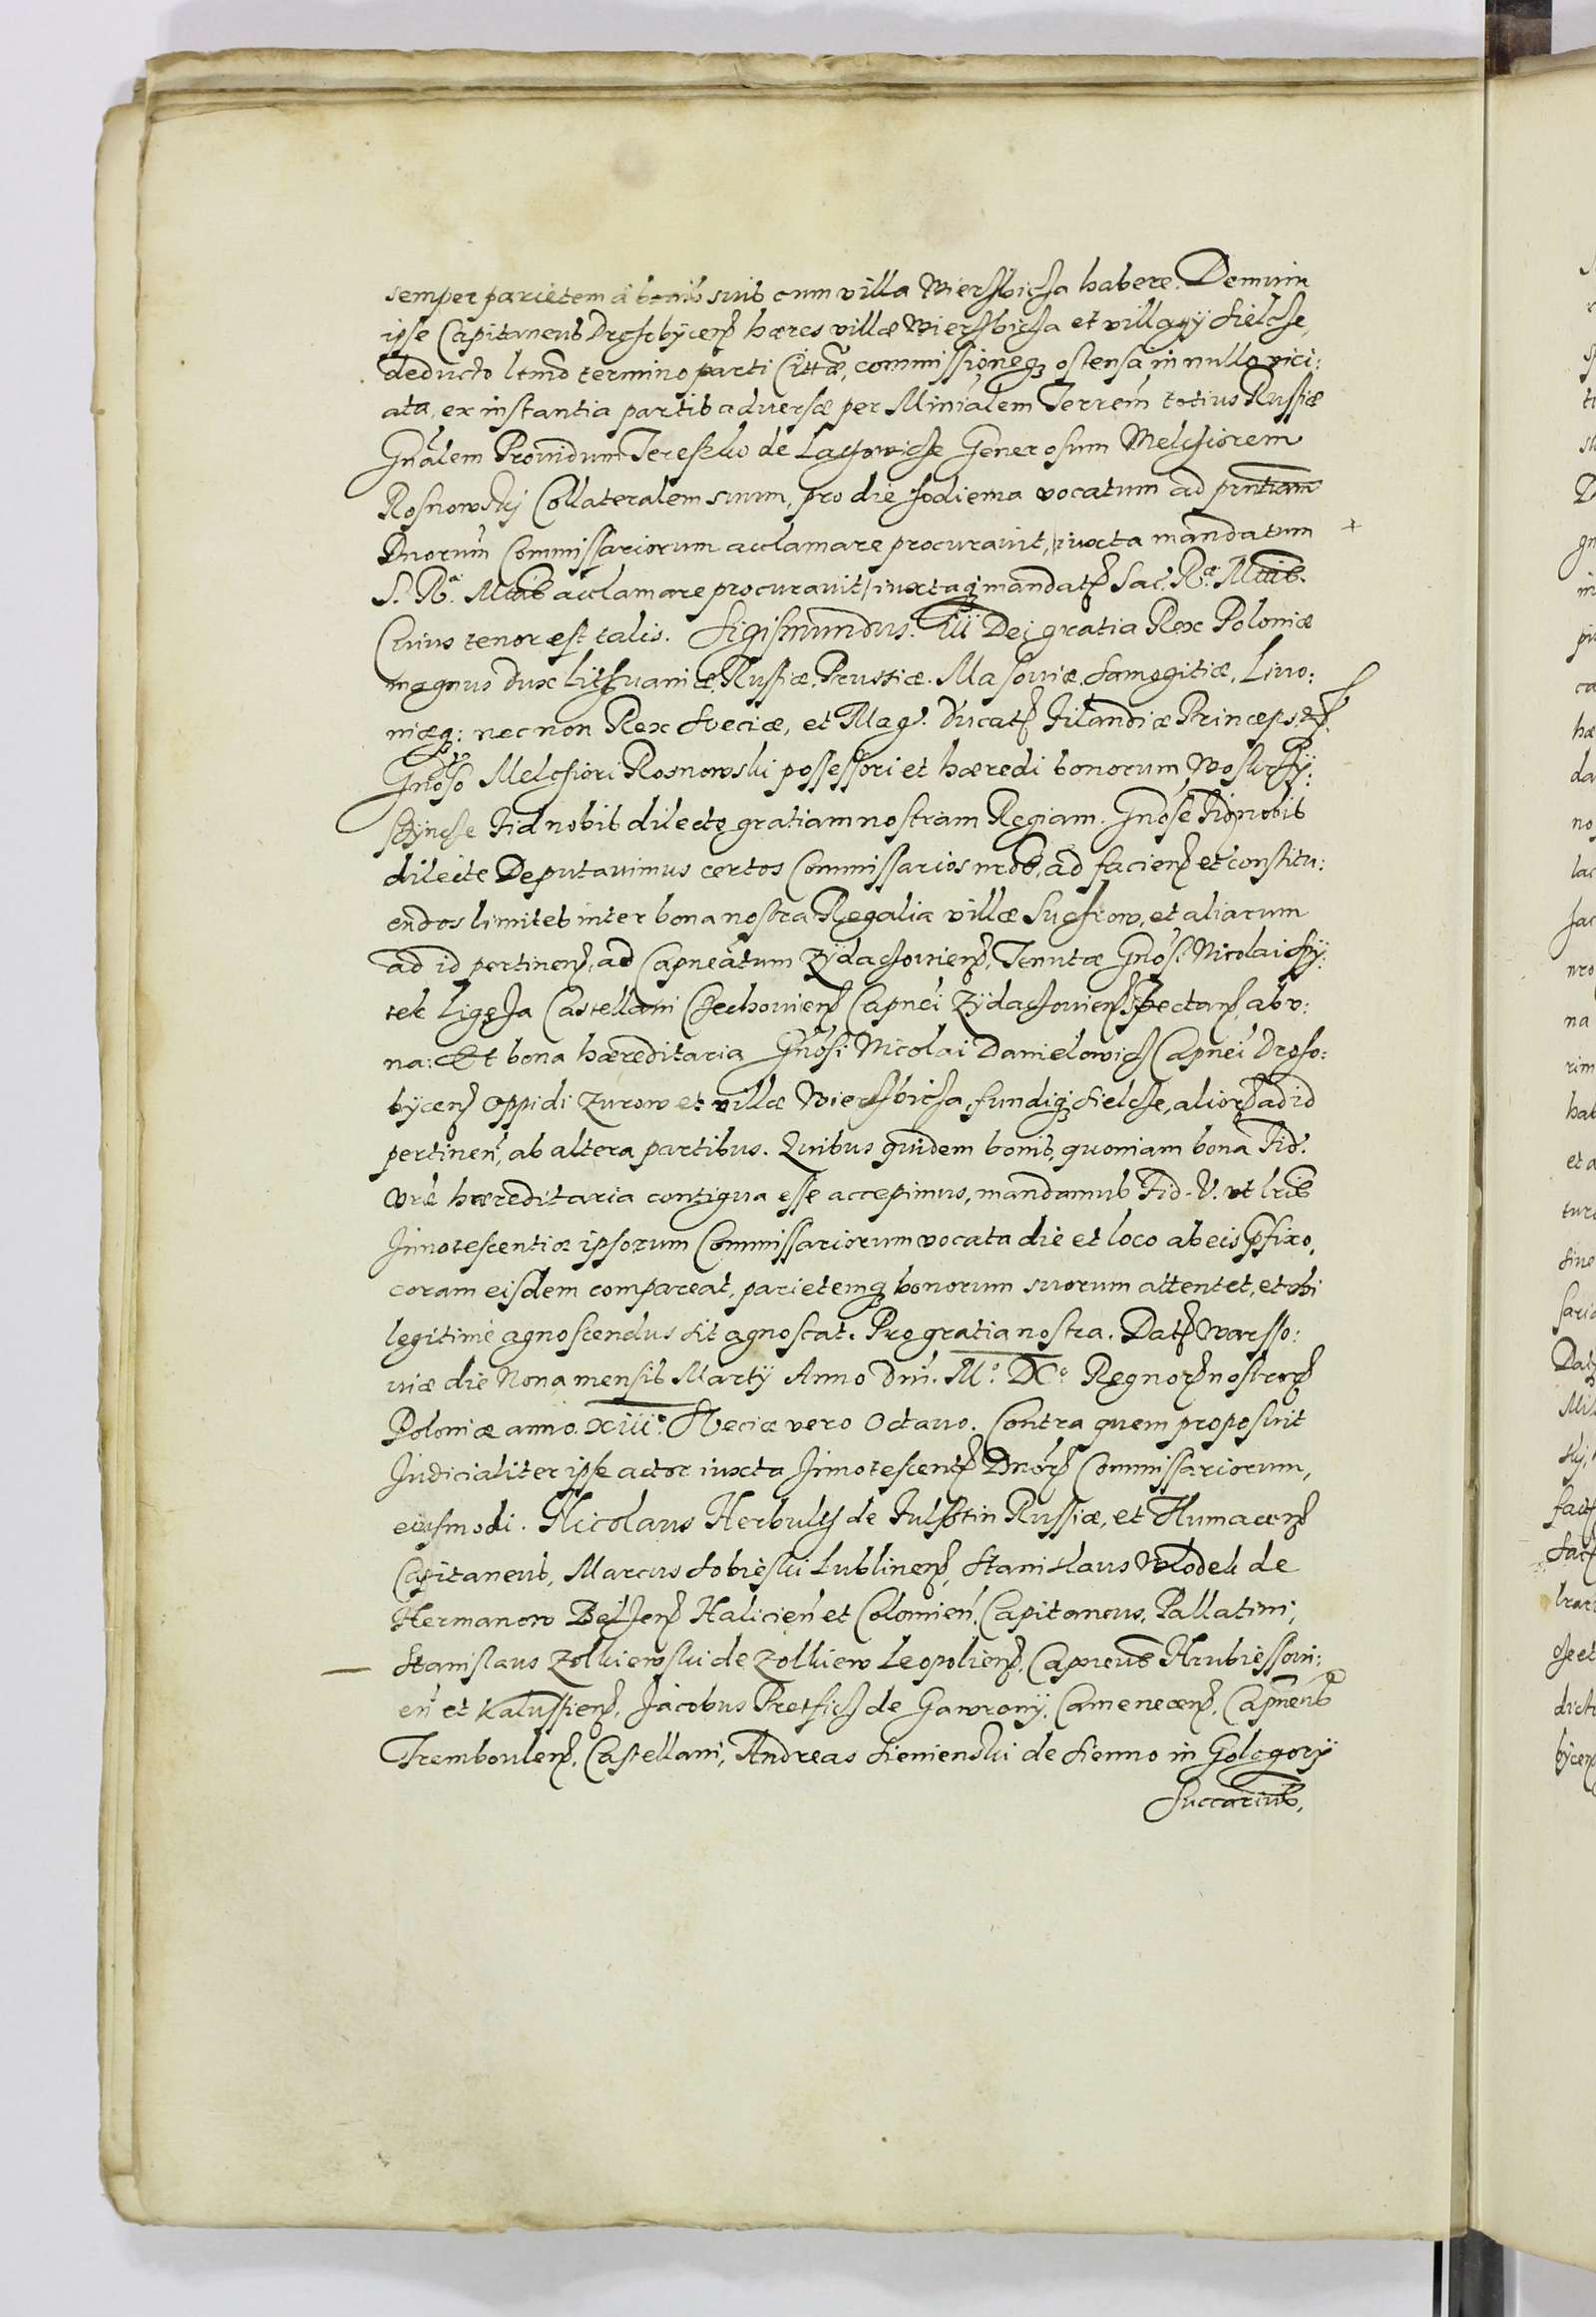 semper parietem a bonis suis cum villa Wierzbicza habere. Demum
ipse Capitaneus Drohobÿcens hæres villæ Wierzbicza et villagÿ Sielcze,
deducto ltmo termino parti Cittæ, commissioneq₃ ostensa in nullo vici:
ata, ex instantia partis adversæ per Minialem Terrem totius Russiæ
Gnalem Providum de Generosum Melchiorem
Rosnowskj Collateralem suum, pro die hodierna vocatum ad pntiam
Dnorum Commissariorum acclamare procuravit, iuxta mandatum +
S. Rª. Mttis acclamare procuravit, iuxtaq₃ mandat Sac. Rª. Mttis.
Cuius tenor est talis. Sigismundus. III Dei gratia Rex Poloniæ
magnus Dux Lithvaniæ, Russiæ, Prussiæ, Masoviæ, Samogitiæ, Livo:
niæq: nec non Rex Sveciæ, et Mag. Ducat Filandiæ Princeps
Gnoso Melchiori Rosnowski possessori et hæredi bonorum
Fid nobis dilecto gratiam nostram Regiam. Gnose Fid nobis
dilecte Deputavimus certos Commissarios nros, ad faciens et constitu:
endos limites inter bona nostra Regalia villæ Suchrow, et aliarum
ad id pertinens, ad Capneatum Zÿdachoviens, Tenutæ Gnosi Nicolai
Ligęza Castellani Czechoviens Capnei Zÿdachoviens spectans, ab v:
na: Et bona hæreditaria Gnosi Nicolai Danielowicz Capnei Droho:
bÿcens Oppidi Zurow et villæ Wierzbicza, fundiq₃ Sielcze, alior ad id
pertinen, ab altera partibus. Quibus quidem bonis, quoniam bona Fid.
Vre hæreditaria contigua esse accepimus, mandamus Fid. V. vt lris
Innotescentiæ ipsorum Commissariorum vocata die et loco ab eis pfixo,
coram eisdem compareat, parietemq₃ bonorum suorum attentet, et vbi
legitime agnoscendus sit agnoscat. Pro gratia nostra. Dat Warsso:
uiæ die Nona mensis Martÿ Anno Dni. M.º DCº Regnor nostror
Poloniæ anno. XIIIº. Sveciæ vero Octavo. Contra quem proposuit
Judicialiter ipse actor iuxta Innotescent Dnor Commissariorum,
eiusmodi. Nicolaus Herbultz de Fulsztin Russiæ, et
Capitaneus, Marcus Sobieski Lublinens, Stanislaus Wlodek de
Hermanow Belzens Halicien et Colomien, Capitaneus, Pallatini,
Stanislaus Zolkiewski de Zolkiew Leopoliens, Capneus Hrubiessovi:
en et Kalussiens, Jacobus Pretficz de Gawronÿ, Camenecens, Capneus
Tremboulens, Castellani, Andreas Sienienski de Sienno in Gologorÿ
Succarius,